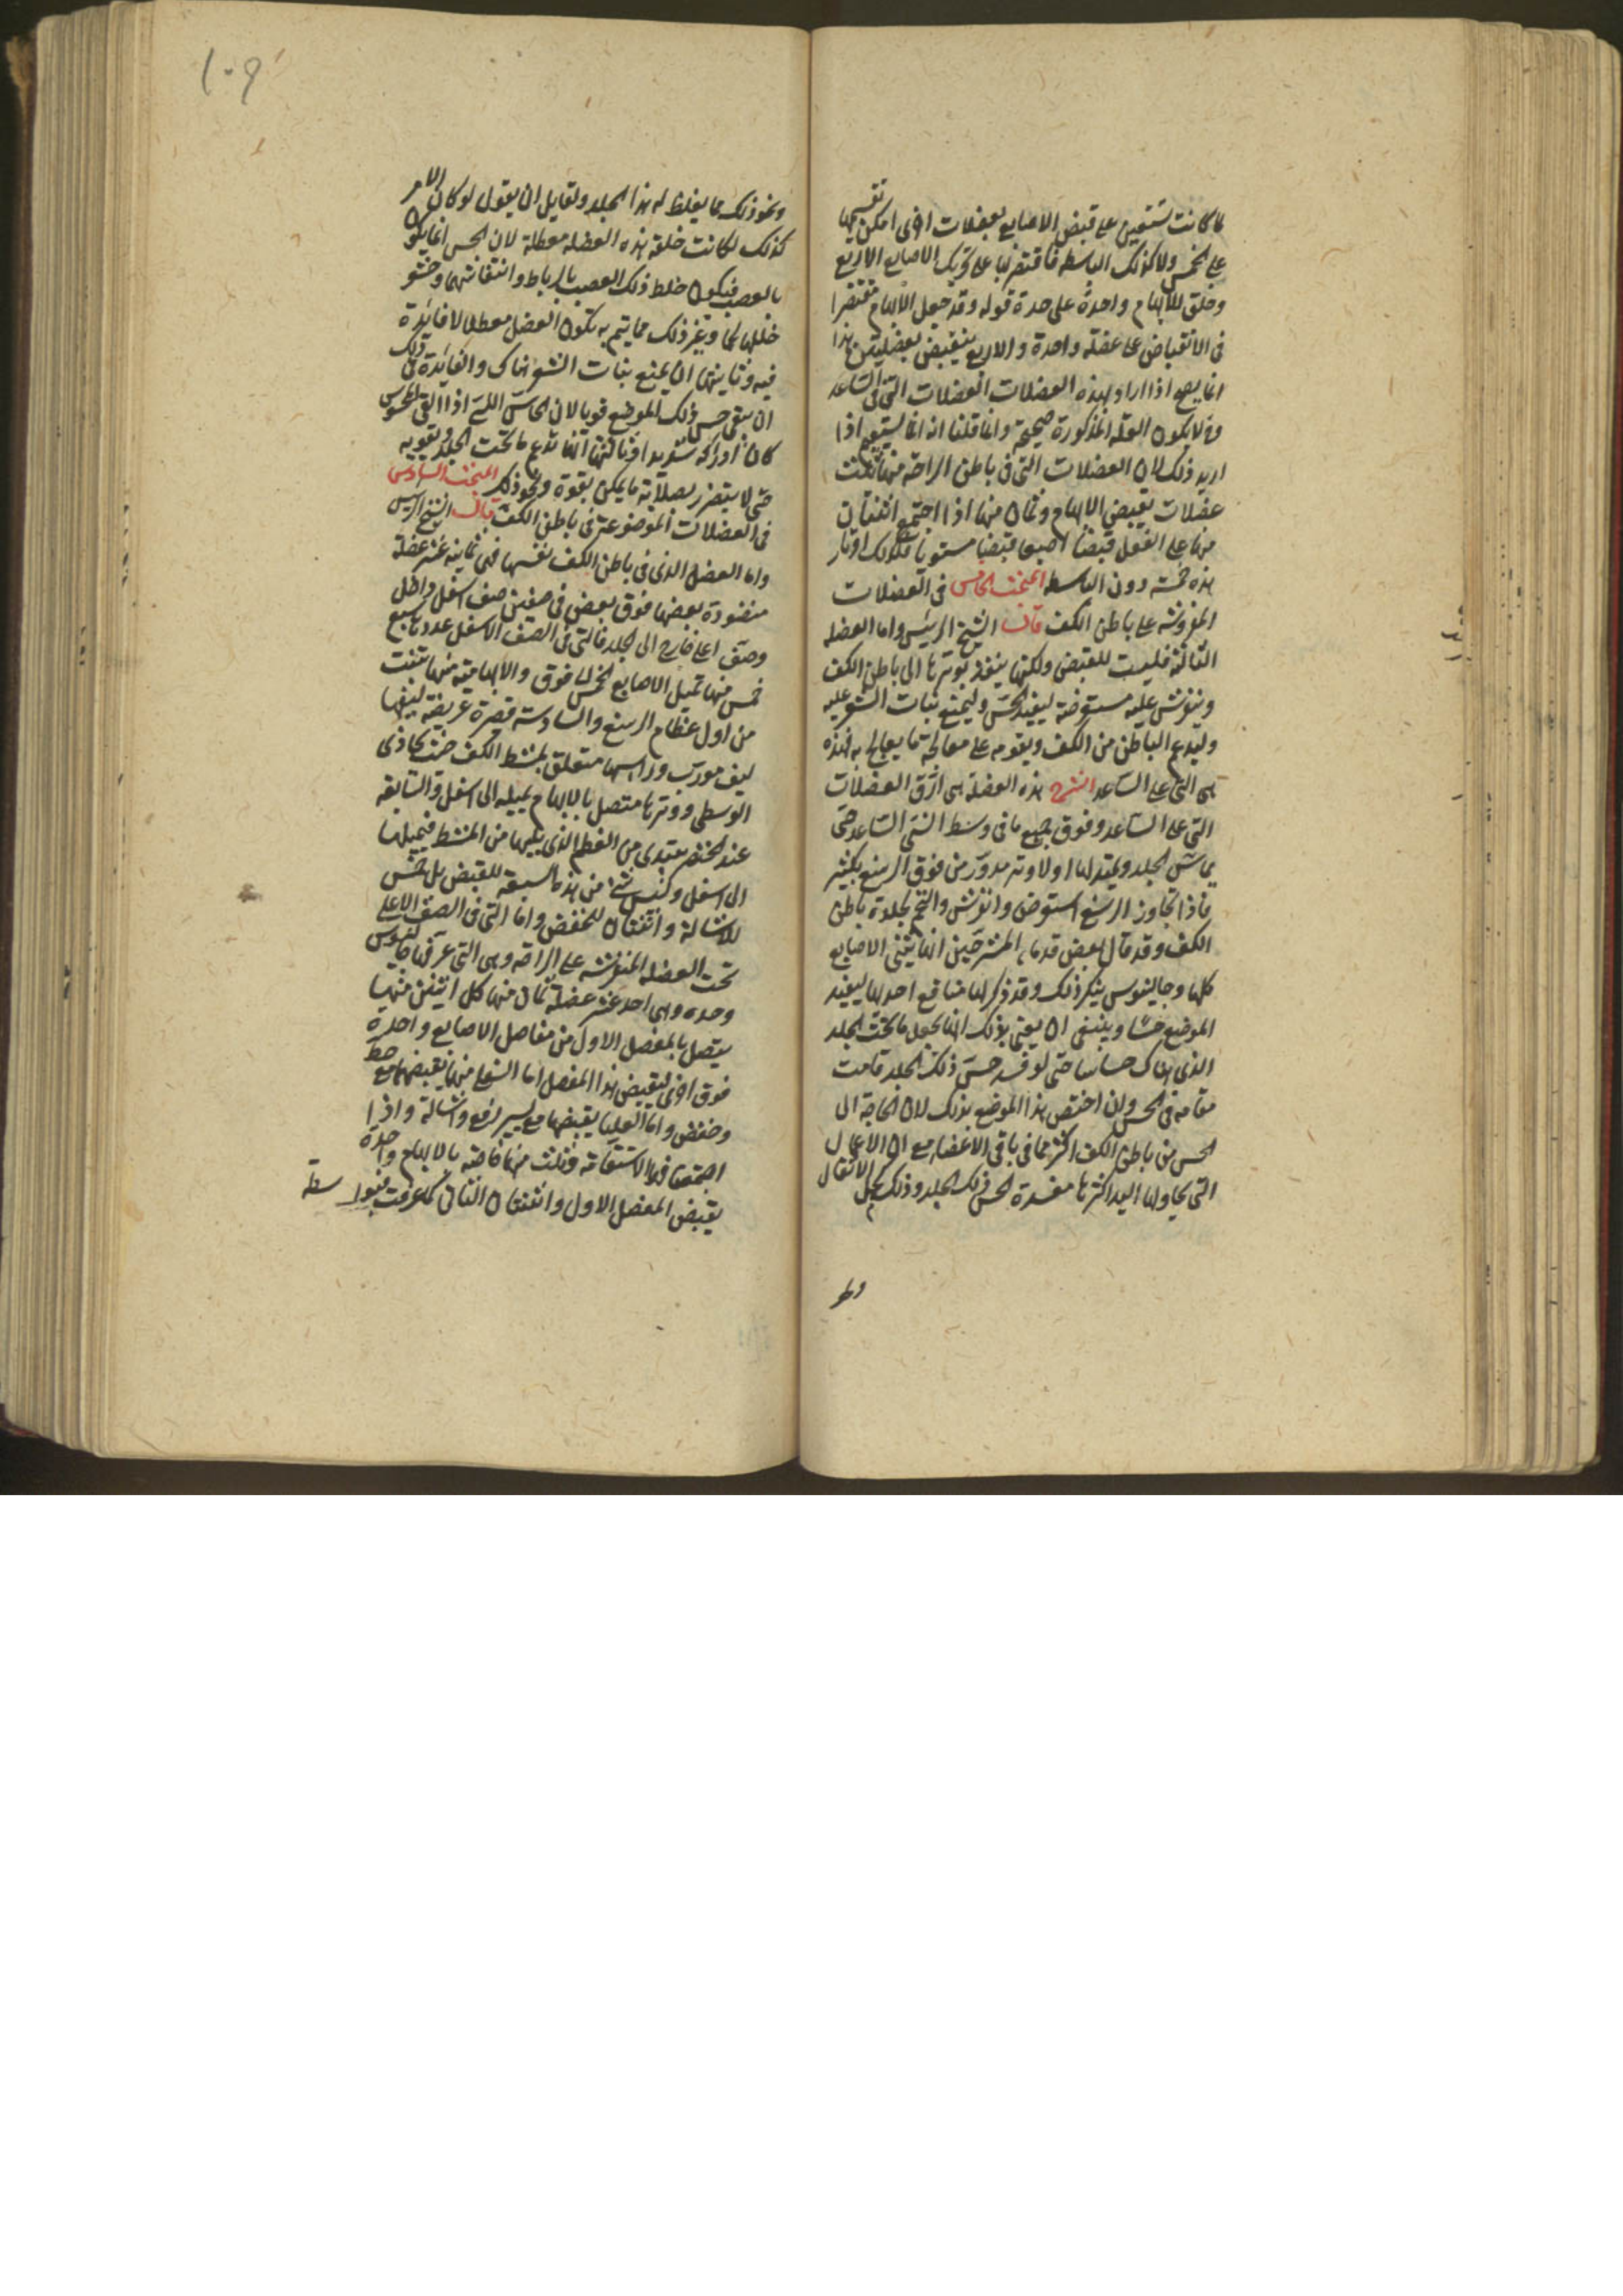 لما كانت تستعين على قبض الاصابع بعضلات اخرى امكن تقسيمها
على الخمس ولا كذلك الباسطه فاقتصر لها على تحريك الاصابع الاربع
وخلق للابهام واحدة على حدة قوله وقد جعل الابهام مقتصرا
فى الانقباض على عضلة واحدة والاربع ينقبض بعضلتين هذا
انما يصح اذا اراد بهذه العضلات العضلات التى فى الساعد
لا يكون العلة المذكورة صحيحة وانما قلنا انه انما يستقيم اذا
اريد ذلك لان العضلات التى فى باطن الراحة منها ثلث
عضلات يقبض الابهام وثمان منها اذا اجتمع اثنتان
منها على الفعل قبضتا اصبعا قبضا مستويا فكذلك اوتار
هذه خمسة دون الباسطه المبحث الخامس فى العضلات
المفروشة على باطن الكف قال الشيخ الرئيس واما العضله
الثالثة فليست للقبض ولكنها ينفذ بوترها الى باطن الكف
وينفرش عليه مستعرضة ليفيده الحس وليمنع نبات الشعر عليه
وليدعم الباطن من الكف ويقومه على معالجة ما يعالج به فهذه
هى التى على الساعد الشرح هذه العضلة هى ارق العضلات
التى على الساعد وفوق جميع ما فى وسط انسى الساعد حتى
يماس الجلد ويمتد لها اولا وتر مدور من فوق الرسغ بكثير
فاذا تجاوز الرسغ استعرض وانفرش والتحم بجلدة باطن
الكف وقد قال بعض قدماء المشرحين انها يثنى الاصابع
كلها وجالينوس ينكر ذلك وقد ذكر لها منافع احدها ليفيد
الموضع حسا وينبغى ان يعنى بذلك انها يجعل ما تحت الجلد
الذى هناك حساسا حتى لو فسد حس ذلك الجلد قامت
مقامه فى الحس وان اختص هذا الموضع بذلك لان الحاجة الى
الحس من باطن الكف اكثر مما فى باقى الاعضاء مع ان الاعمال
التى يحاولها اليد اكثرها مفسدة لحس ذلك الجلد وذلك كحمل الاثقال
١٠٩
ونحو ذلك مما يغلظ له هذا الجلد ولقايل ان يقول لو كان الامر
كذلك لكانت خلقة هذه العضله معطلة لان الحس انما يكون
بالعصب فيكون خلط ذلك العصب بالرباط وانتفاشهما وحشو
خللهما لحما وغير ذلك مما يتم به تكون العضل معطلا لا فائدة
فيه وثانيتها ان يمنع نبات الشعر هناك والفائدة فى ذلك
ان يبقى حس ذلك الموضع قويا لان الحاس اللمس اذا لقى المحسوس
كان ادراكه شديدا وثالثها انها تدعم ما تحت الجلد ويقويه
حتى لا يتضرر بصلابة ما يمسك بقوة ونحو ذلك المبحث السادس
فى العضلات الموضوعة فى باطن الكف قال الشيخ الرئيس
واما العضل الذى فى باطن الكف نفسها فهى ثمانية عشر عضلة
منضودة بعضها فوق بعض فى صفين صف اسفل داخل
وصف اعلى خارج الى الجلد فالتى فى الصف الاسفل عددها سبع
خمس منها تميل الاصابع الخمس الى فوق والابهامية منها تنبت
من اول عظام الرسغ والسادسة قصيرة عريضة ليفها
ليف مورب وراسها متعلق بمشط الكف حيث يحاذى
الوسطى ووترها متصل بالابهام يميله الى اسفل والسابعة
عند الخنصر يبتدى من العظم الذى يليها من المشط فيميلها
الى اسفل وليس شىء من هذه السبعة للقبض بل خمس
للاشالة واثنتان للخفض واما التى فى الصف الاعلى
تحت العضله المنفرشة على الراحه وهى التى عرفها جالينوس
وحده وهى احد عشر عضلة ثمان منها كل اثنتين منها
يتصل بالمفصل الاول من مفاصل الاصابع واحدة
فوق اخرى ليقبض هذا المفصل اما السفلى منها فيقبضها مع حط
وخفض واما العليا يقبضها مع يسير رفع واشالة واذا
اجتمعتا فبالاستقامة وثلث منها خاصة بالابهام واحدة
يقبض المفصل الاول واثنتان الثانى كما عرفت